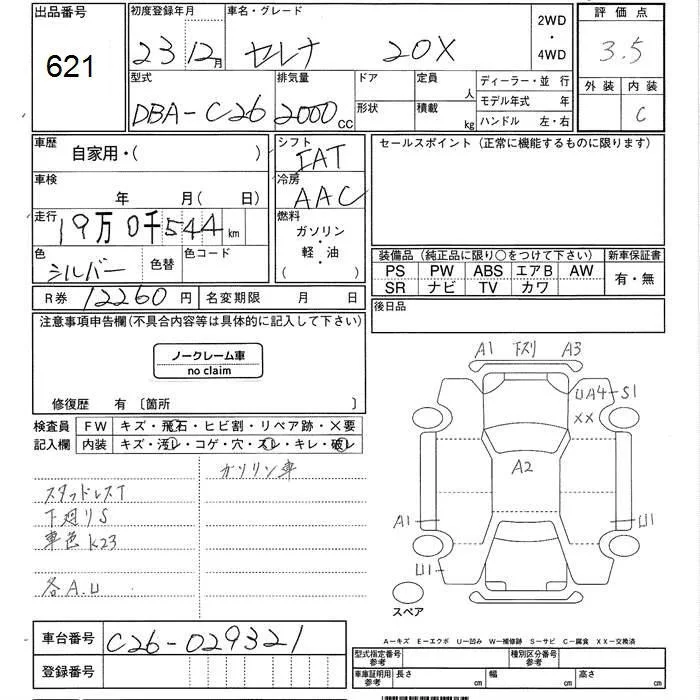 出品番号 初度登録年月 車名・グレード 2WD・4WD 評価点
621 23 12月 セレナ 20X 3.5
型式 排気量 ドア 定員 人 ディーラー・並 行 外装 内装
DBA-C26 2000CC 形状 積載 kg モデル年式 年 C
ハンドル 左・右
車歴 自家用・( ) シフト IAT セールスポイント(正常に機能するものに限ります)
車検 年 月( 日) 冷房 AAC
走行 19万0千544km 燃料 ガソリン・軽・油 ( )
色 シルバー 色替 色コード
装備品(純正品に限り○をつけて下さい) 新車保証書
PS PW ABS エアB AW 有・無
SR ナビ TV カワ
R券 12260円 名変期限 月 日 後日品
注意事項申告欄(不具合内容等は具体的に記入して下さい)
ノークレーム車
no claim
修復歴 有 〔箇所 〕
検査員 FW キズ・飛石・ヒビ割・リペア跡・×要
記入欄 内装 キズ・汚レ・コゲ・穴・スレ・キレ・破レ
ガソリン車
スタッドレスT
下廻りS
車色K23
各A.U
A1 下スリ A3
UA4-S1
XX
A2
A1 U1
U1
スペア
A-キズ E-エクボ U-凹み W-補修跡 S-サビ C-腐食 XX-交換済
車台番号 C26-029321
登録番号
型式指定番号 参考 種別区分番号 参考
車庫証明用 参考 長さ cm 幅 cm 高さ cm